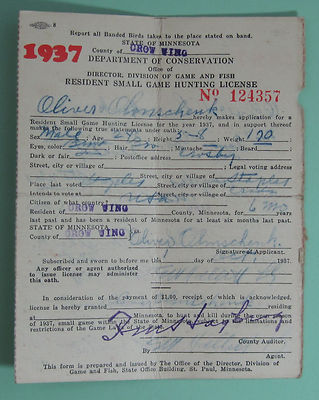 8
Report all Banded Birds taken to the place stated on band.
STATE OF MINNESOTA
1937
County of CROW WING
DEPARTMENT OF CONSERVATION
Office of
DIRECTOR, DIVISION OF GAME AND FISH
RESIDENT SMALL GAME HUNTING LICENSE
No 124357
Oliver
hereby makes application for a
Resident Small Game Hunting License for the year 1937, and in support thereof
makes the following true statements under oath:
Sex, Male Age, Height, 5-8 Weight, 170
Eyes, color, Hair, Mustache, Beard,
Dark or fair, Postoffice address, Crosby
Street, city or village of Legal voting address
Street, city or village of
Place last voted Crosby Street, city or village of
Citizen of what country? USA
Resident of CROW WING County, Minnesota, for 6 mo
last past and has been a resident of Minnesota for at least six months last past.
STATE OF MINNESOTA
County of CROW WING
Oliver
Subscribed and sworn to before me this day of 1937.
Any officer or agent authorized
to issue license may administer
this oath.
In consideration of the payment of $1.00, receipt of which is acknowledged,
license is hereby granted
of Minnesota, to hunt and kill during the open season
of 1937, small game within the State of Minnesota subject to the limitations and
restrictions of the Game Laws.
County Auditor.
By
Agent.
This form is prepared and issued by The Office of the Director, Division of
Game and Fish, State Office Building, St. Paul, Minnesota.